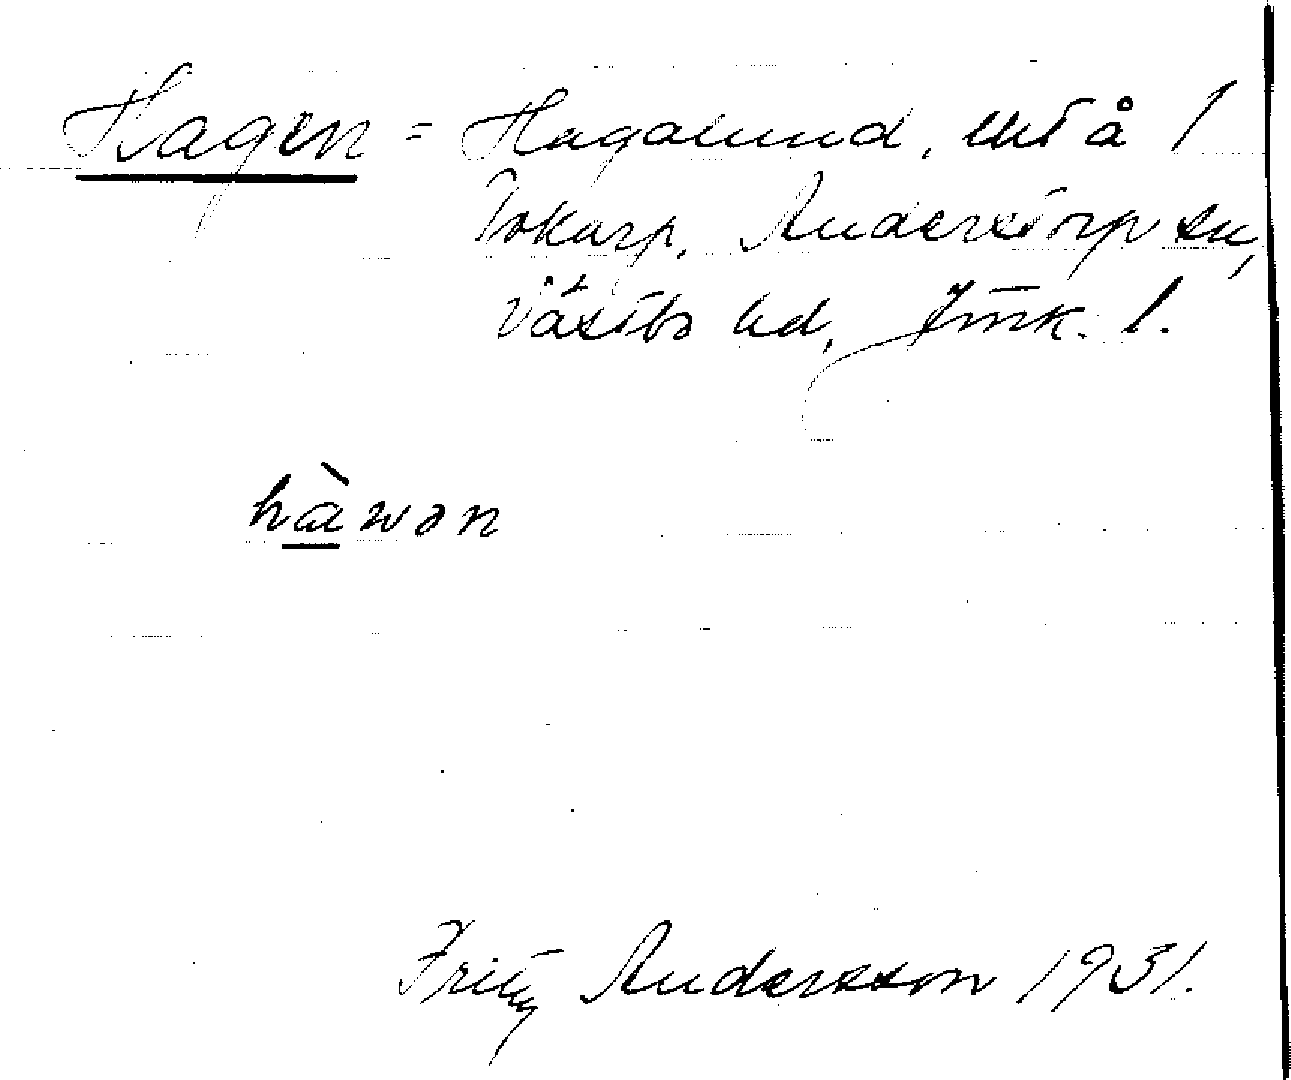 Hagen = Hagalund, utå 1
Tokarp, Anderstorp sn,
Västbo hd, Jönk. l.
hàwən
Fritz Andersson 1931.